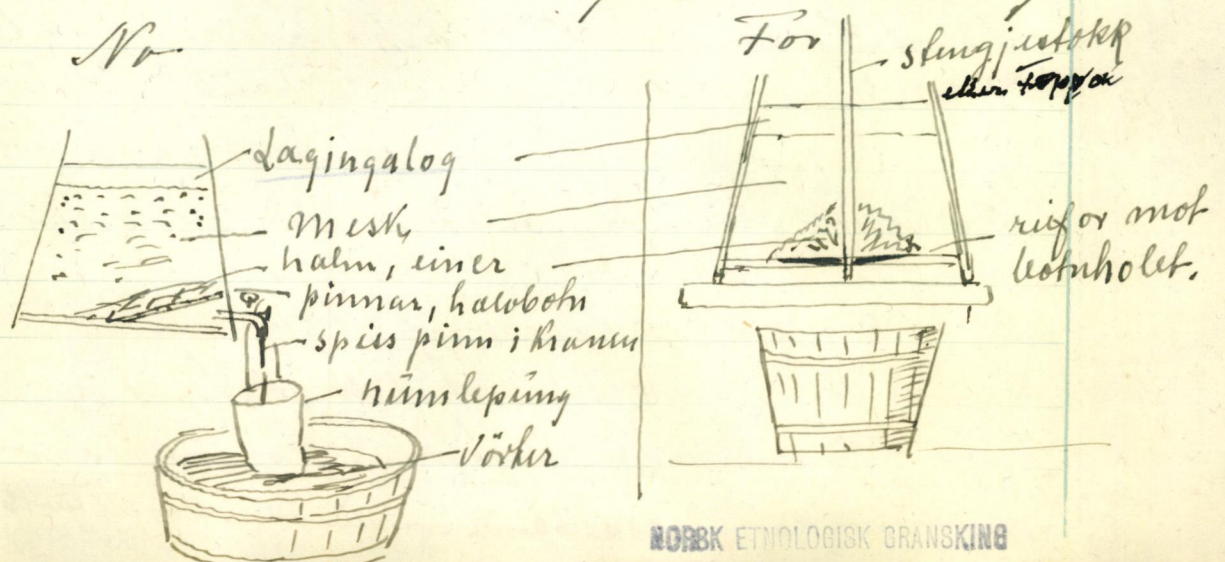 No
Lagingalog
Mesk,
halm, einer
pinnar, halvbotn
spiss pinn i kranen
humlepung
Vörter
Før
stengjestokk
eller
rifor mot
botnholet.
NORSK ETNOLOGISK GRANSKING